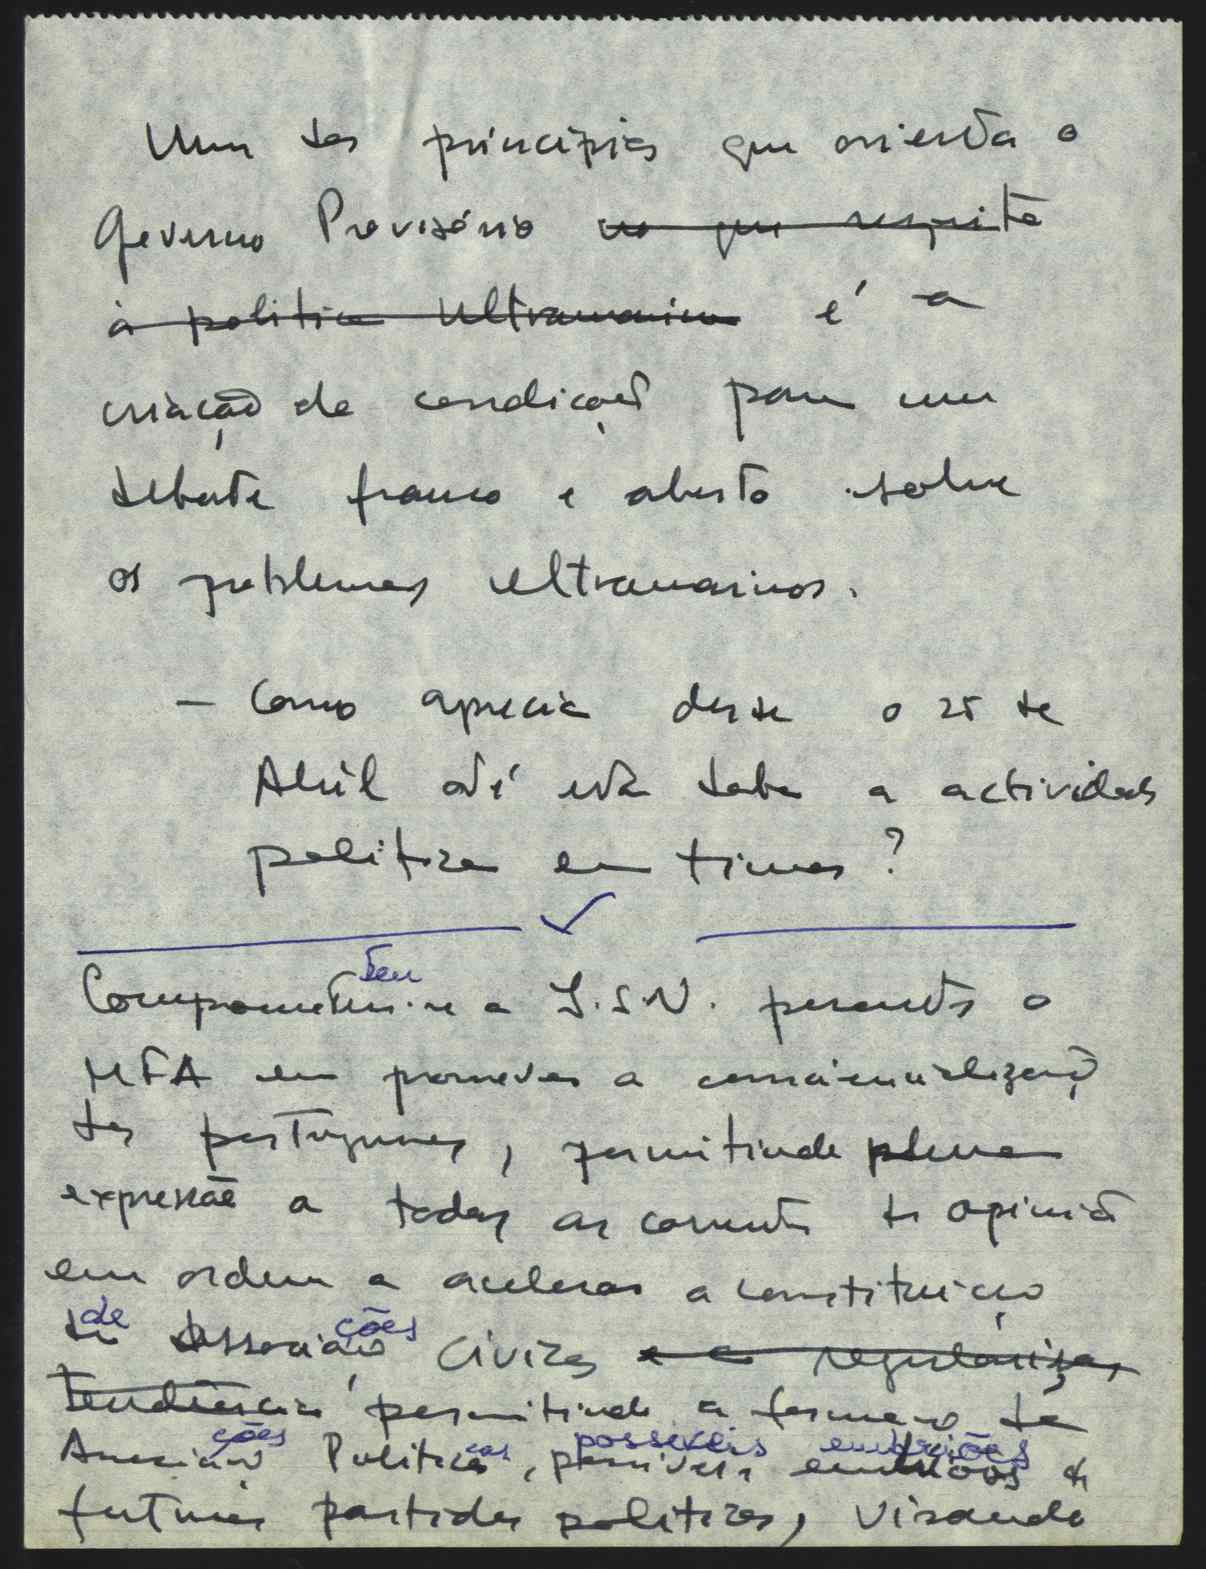 Um dos princípios que orienta o
Governo Provisório no que respeita
à politica Ultramarina é a
criação de condições para um
debate franco e aberto sobre
os problemas ultramarinos.
– Como aprecia desde o 25 de
Abril até esta data a actividade
politica em Timor?
ten
Comprometeu-se a J.S.N. perante o
MFA em promover a consciencialização
dos portugueses, permitindo plena
expressão a todas as correntes de opinião
em ordem a acelerar a constituição
de ções
de Associação Civicas e a regularizar
Tendência permitindo a formação de
ções cas possíveis embriões
Associação Politica, possiveis embriões de
futuros partidos politicos, visando